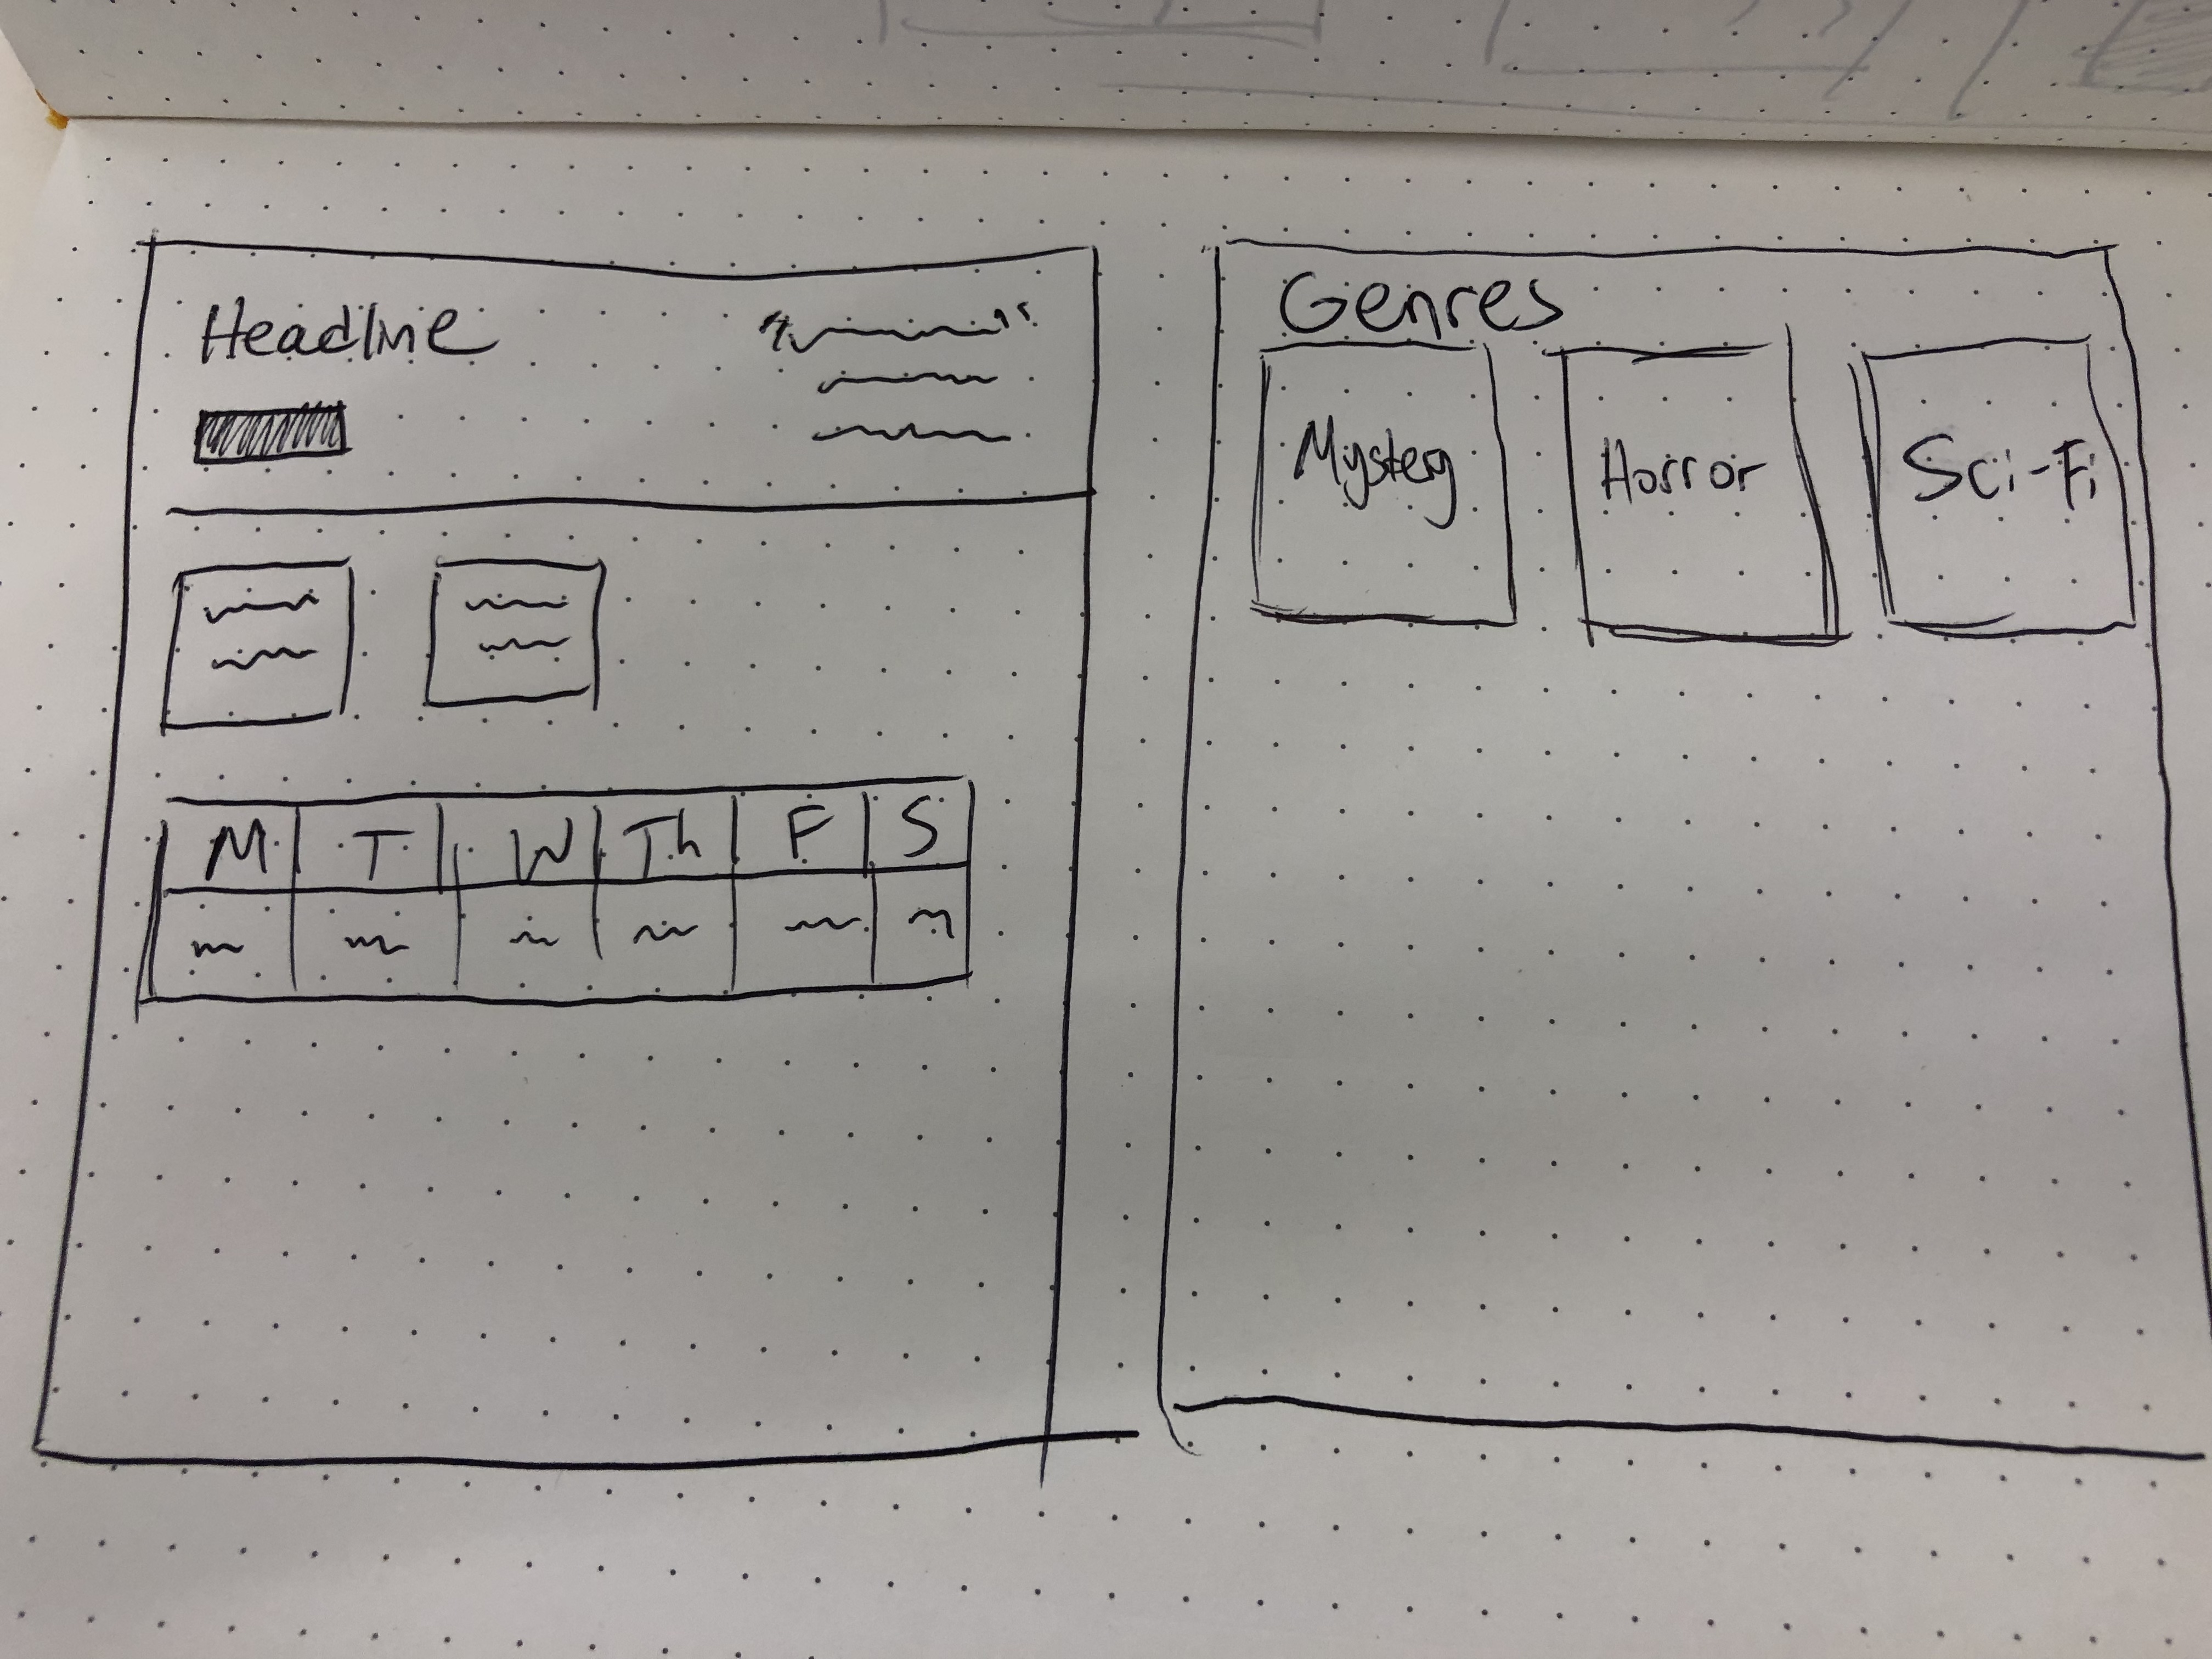 Headline
M T W Th F S
Genres
Mystery Horror Sci-Fi